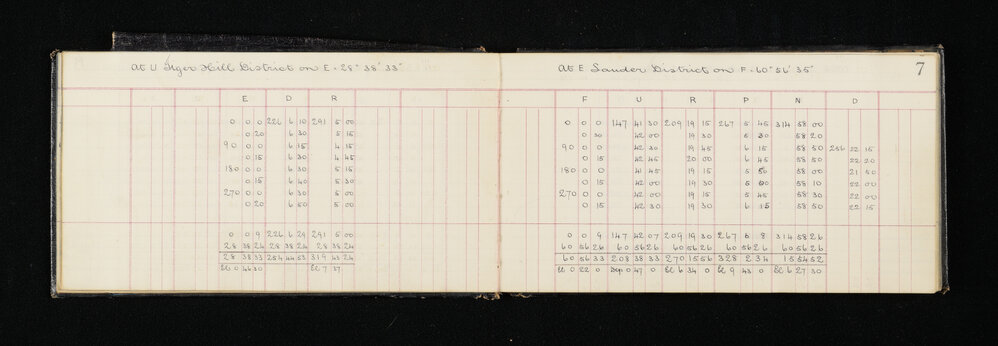 At U Tiger Hill District on E = 28° 38' 33"
E D R
0 0 0 226 6 10 291 5 00
0 20 6 30 5 15
90 0 0 6 15 4 15
0 15 6 30 4 45
180 0 0 6 30 5 15
0 15 6 40 5 30
270 0 0 6 30 5 00
0 20 6 50 5 00
0 0 9 226 6 29 291 5 00
28 38 24 28 38 24 28 38 24
28 38 33 254 44 53 319 43 24
El 0 46 30 El 7 37
At E Lauder District on F = 60° 56' 35"
7
F U R P N D
0 0 0 147 41 30 209 19 15 267 5 45 314 58 00
0 30 42 00 19 30 5 30 58 20
90 0 0 42 30 19 45 6 15 58 50 256 22 15
0 15 42 45 20 00 6 45 58 50 22 20
180 0 0 41 45 19 15 5 58 00 21 50
0 15 42 00 19 30 5 58 10 22 00
270 0 0 42 00 19 15 5 45 58 30 22 00
0 15 42 30 19 30 6 15 58 50 22 15
0 0 9 147 42 07 209 19 30 267 6 8 314 58 26
60 56 26 60 56 26 60 56 26 60 56 26 60 56 26
60 56 33 208 38 33 270 15 56 328 2 34 15 54 52
El 0 22 0 Dep 0 47 0 El 6 34 0 El 9 43 0 El 6 27 30